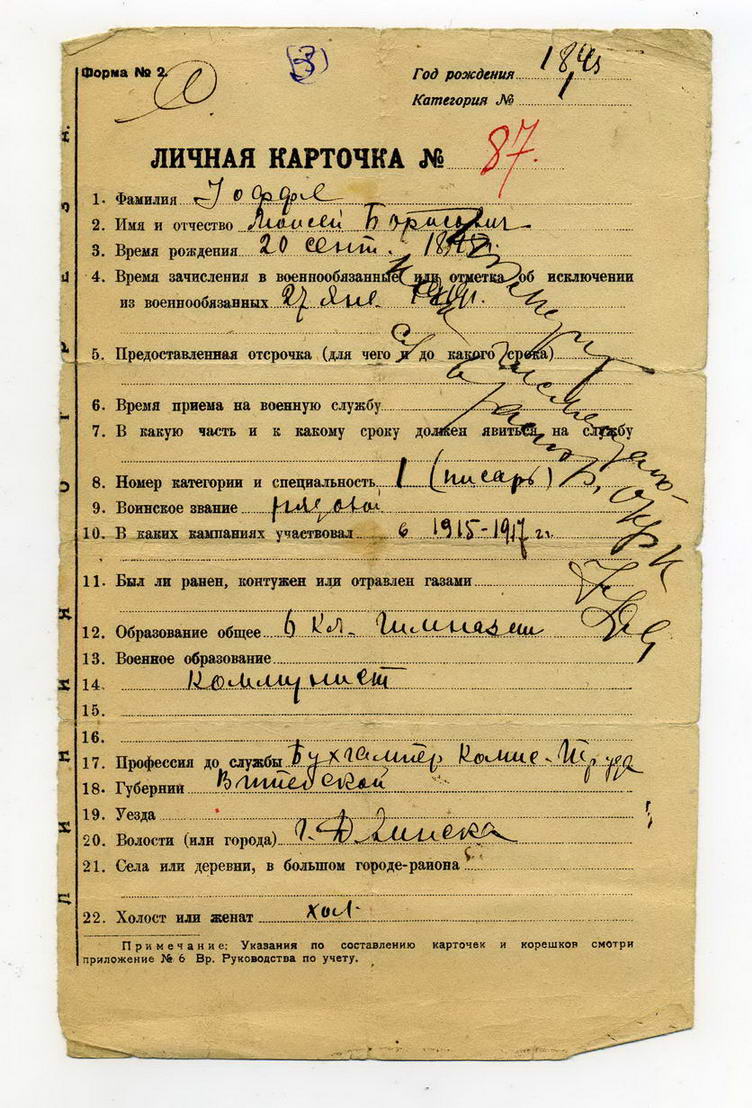 Форма № 2.
(3)
Год рождения
Категория № 1
ЛИЧНАЯ КАРТОЧКА № 87.
1. Фамилия Іоффе
2. Имя и отчество Моисей Борисович
3. Время рождения 20 сент.
4. Время зачисления в военнообязанные или отметка об исключении
из военнообязанных 27 Янв.
5. Предоставленная отсрочка (для чего и до какого срока)
6. Время приема на военную службу
7. В какую часть и к какому сроку должен явиться на службу
8. Номер категории и специальность 1 (писарь)
9. Воинское звание рядовой
10. В каких кампаниях участвовал в 1915-1917 гг.
11. Был ли ранен, контужен или отравлен газами
12. Образование общее 6 кл. гимназии
13. Военное образование
14. Коммунист
15.
16.
17. Профессия до службы Бухгалтер Комис. Труда
18. Губернии Витебской
19. Уезда
20. Волости (или города) г. Двинска
21. Села или деревни, в большом городе-района
22. Холост или женат хол.
Примечание: Указания по составлению карточек и корешков смотри
приложение № 6 Вр. Руководства по учету.
ЛИНИЯ ОТРЕЗН.